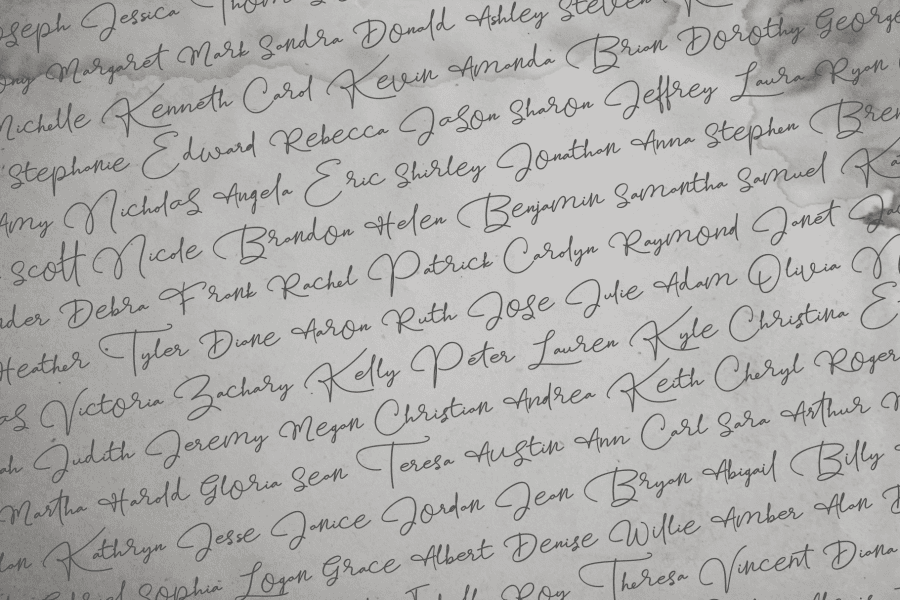 Joseph Jessica Thomas
Margaret Mark Sandra Donald Ashley Steven
Michelle Kenneth Carol Kevin Amanda Brian Dorothy George
Stephanie Edward Rebecca Jason Sharon Jeffrey Laura Ryan
Amy Nicholas Angela Eric Shirley Jonathan Anna Stephen
Scott Nicole Brandon Helen Benjamin Samantha Samuel
Debra Frank Rachel Patrick Carolyn Raymond Janet
Heather Tyler Diane Aaron Ruth Jose Julie Adam Olivia
Victoria Zachary Kelly Peter Lauren Kyle Christina
Judith Jeremy Megan Christian Andrea Keith Cheryl Roger
Martha Harold Gloria Sean Teresa Austin Ann Carl Sara Arthur
Kathryn Jesse Janice Jordan Jean Bryan Abigail Billy
Sophia Logan Grace Albert Denise Willie Amber Alan
Roy Theresa Vincent Diana